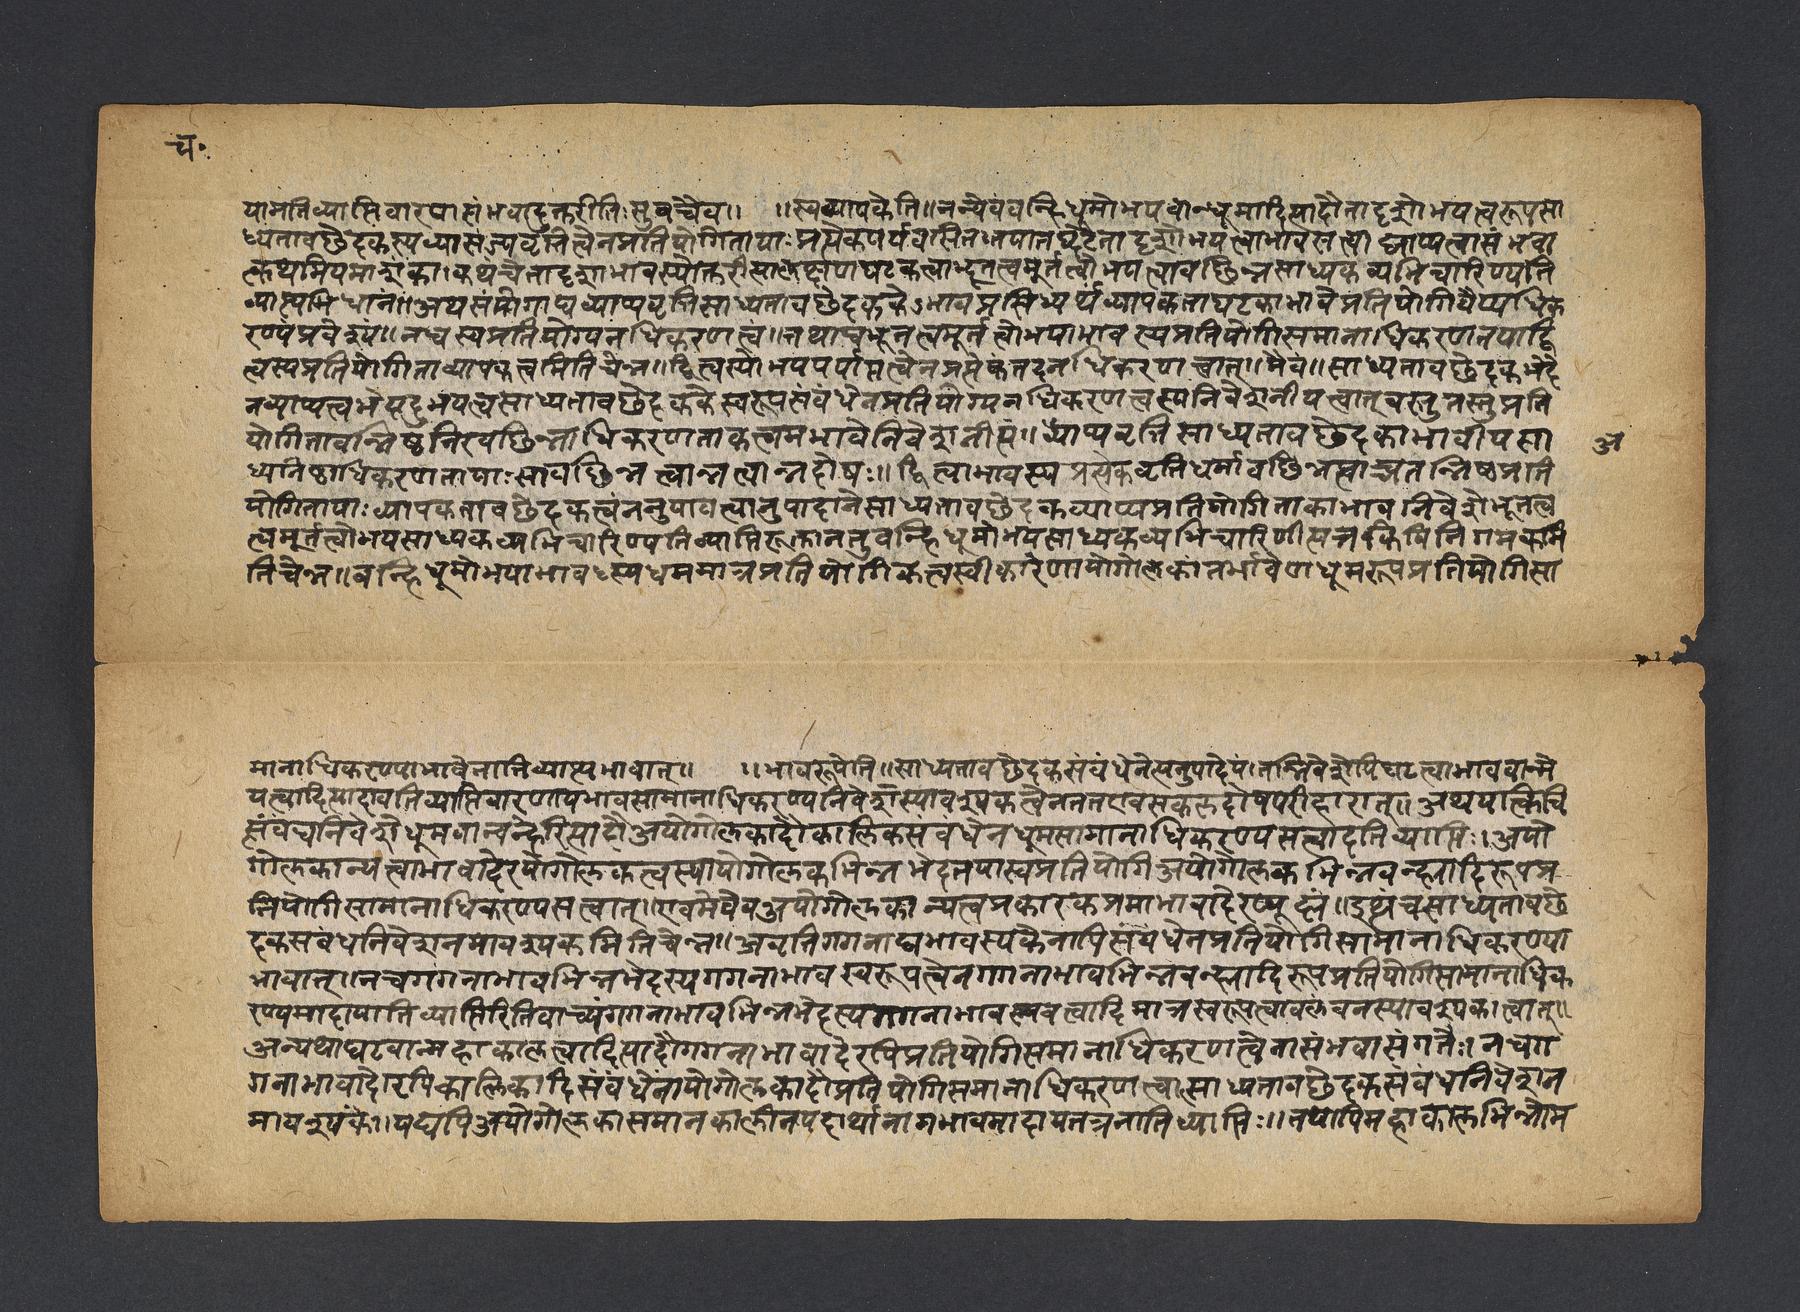 च॰
यामतिव्याप्तिवारणासंभवादुक्तरीतिःसुवचैव॥ ॥स्वव्यापकेति॥नन्वेवंवन्हिधूमोभयवान्धूमादित्यादौतादृशोभयत्वरूपसा
ध्यतावछेदकस्यव्यासज्यवृत्तित्वेनप्रतियोगितायाःप्रत्येकपर्यवसितनयातद्घटेतादृशोभयत्वाभावसत्वो द्व्याप्यत्वासंभवा
त्कथमियमाशंका।कथंचतादृशाभावस्योक्तरीत्यालक्षणाघटकत्वाद्भूतत्वमूर्तत्वोभयत्वावछिन्नसाध्यकव्यभिचारिण्यति
व्याप्त्यभिधानं॥अथसंयोगाद्यव्याप्यवृत्तिसाध्यतावछेदककेऽभावप्रसिध्यर्थंव्यापकताघटकाभावेप्रतियोगिवैय्यधिक
रण्यंप्रवेश्यं॥तच्चस्वप्रतियोग्यनधिकरणत्वं॥तथाचभूतत्वमूर्तत्वोभयाभावस्यप्रतियोगिसमानाधिकरणतयाद्वि
त्वस्यप्रतियोगिताव्यापकत्वमितिचेन्न॥द्वित्वस्योभयपर्याप्तत्वेनप्रत्येकंतदनधिकरणत्वात्॥मैवं॥साध्यतावछेदकभेदे
नव्याप्यत्वभेदादुभयत्वसाध्यतावछेदककेस्वरूपसंबंधेनप्रतियोग्यनधिकरणत्वस्यनिवेशनीयत्वात्वस्तुतस्तुप्रति
योगितावन्निष्ठनिरवछिन्नाधिकरणताकत्वमभावेनिवेशनीयं॥व्याप्यवृत्तिसाध्यतावछेदकाभावीयसा
ध्यनिष्ठाधिकरणतायाःसावछिन्नत्वान्नत्वान्नदोषः॥द्वित्वाभावस्यप्रत्येकवृत्तिधर्मावछिन्नत्वान्नतन्निष्ठप्रति
योगितायाःव्यापकतावछेदकत्वंननुयावत्वानुपादानेसाध्यतावछेदकव्याप्यप्रतियोगिताकाभावनिवेशेभूतत्व
त्वमूर्तत्वोभयसाध्यकव्यभिचारिण्यतिव्याप्तिरूक्तानतुवन्हिधूमोभयसाध्यकव्यभिचारिणीत्यत्रकिंविनिगमकमि
तिचेन्न॥वन्हिधूमोभयाभावध्स्यधममात्रप्रतियोगिकत्वस्वीकारेणायोगोलकांतर्भावेणधूमरूपप्रतियोगिसा
ॐ
मानाधिकरण्याभावेनातिव्याप्त्यभावात्॥ ॥भावरूपेति॥साध्यतावछेदकसंबंधेनेत्यनुपादेयं।तन्निवेशेपिघटत्वाभाववान्मे
यत्वादित्यादावतिव्याप्तिवारणायभावसामानाधिकरण्यनिवेशस्यावश्यकत्वेनततएवसकलदोषपरीहारात्॥अथयत्किंचि
त्संबंधनिवेशेधूमवान्वन्हेरित्यादौअयोगोलकादौकालिकसंबंधेनधूमसामानाधिकरण्यसत्वादतिव्याप्तिः।अयो
गोलकान्यत्वाभावादेरयोगोलकत्वस्यायोगोलकभिन्नभेदतयास्वप्रतियोगिअयोगोलकभिन्नवन्ह्यादिरूपप्र
तियोगिसामानाधिकरण्यसत्वात्।एवमेवैवअयोगोलकान्यत्वप्रकारकप्रमाभावादेरप्यूह्यं॥इत्थंचसाध्यतावछे
दकसंबंधनिवेशनमावश्यकमितिचेन्न॥अवृत्तिगगनाद्यभावस्यकेनापिसंबंधेनप्रतियोगिसामानाधिकरण्या
भावात्।नचगगनाभावभिन्नभेदस्यगगनाभावस्वरूपत्वेनगगनाभावभिन्नवन्ह्यादिरूपप्रतियोगिसामानाधिक
रण्यमादायातिव्याप्तिरितिवाच्यंगगनाभावभिन्नभेदस्यगगनाभावत्ववत्वादिमात्रस्वरूपत्वावलंबनस्यावश्यकत्वात्॥
अन्यथाघटवान्महाकालत्वादित्यादौगगनाभावादेरपिप्रतियोगिसमानाधिकरणत्वेनासंभवासंगतेः।नचग
गनाभावादेरपिकालिकादिसंबंधेनायोगोलकादौप्रतियोगिसमानाधिकरणत्वात्साध्यतावछेदकसंबंधनिवेशन
मावश्यकं।यद्यपिअयोगोलकासमानकालीनपदार्थानागभावमादायतत्रनातिव्याप्तिः॥तथापिमहाकालभिन्नोम